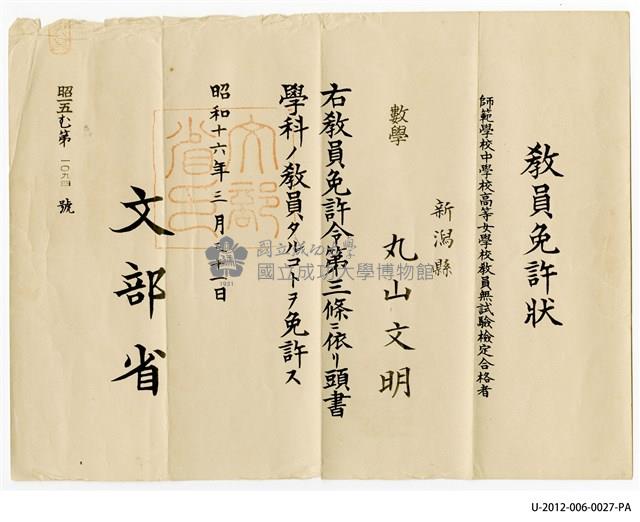 教員免許狀
師範學校中學校高等女學校教員無試驗檢定合格者
新潟縣
丸山文明
數學
右教員免許令第三條ニ依リ頭書
學科ノ教員タルコトヲ免許ス
昭和十六年三月三十一日
文部省
昭一五む第一〇九四號
文部省印
國立成功大學
國立成功大學博物館
1931
U-2012-006-0027-PA